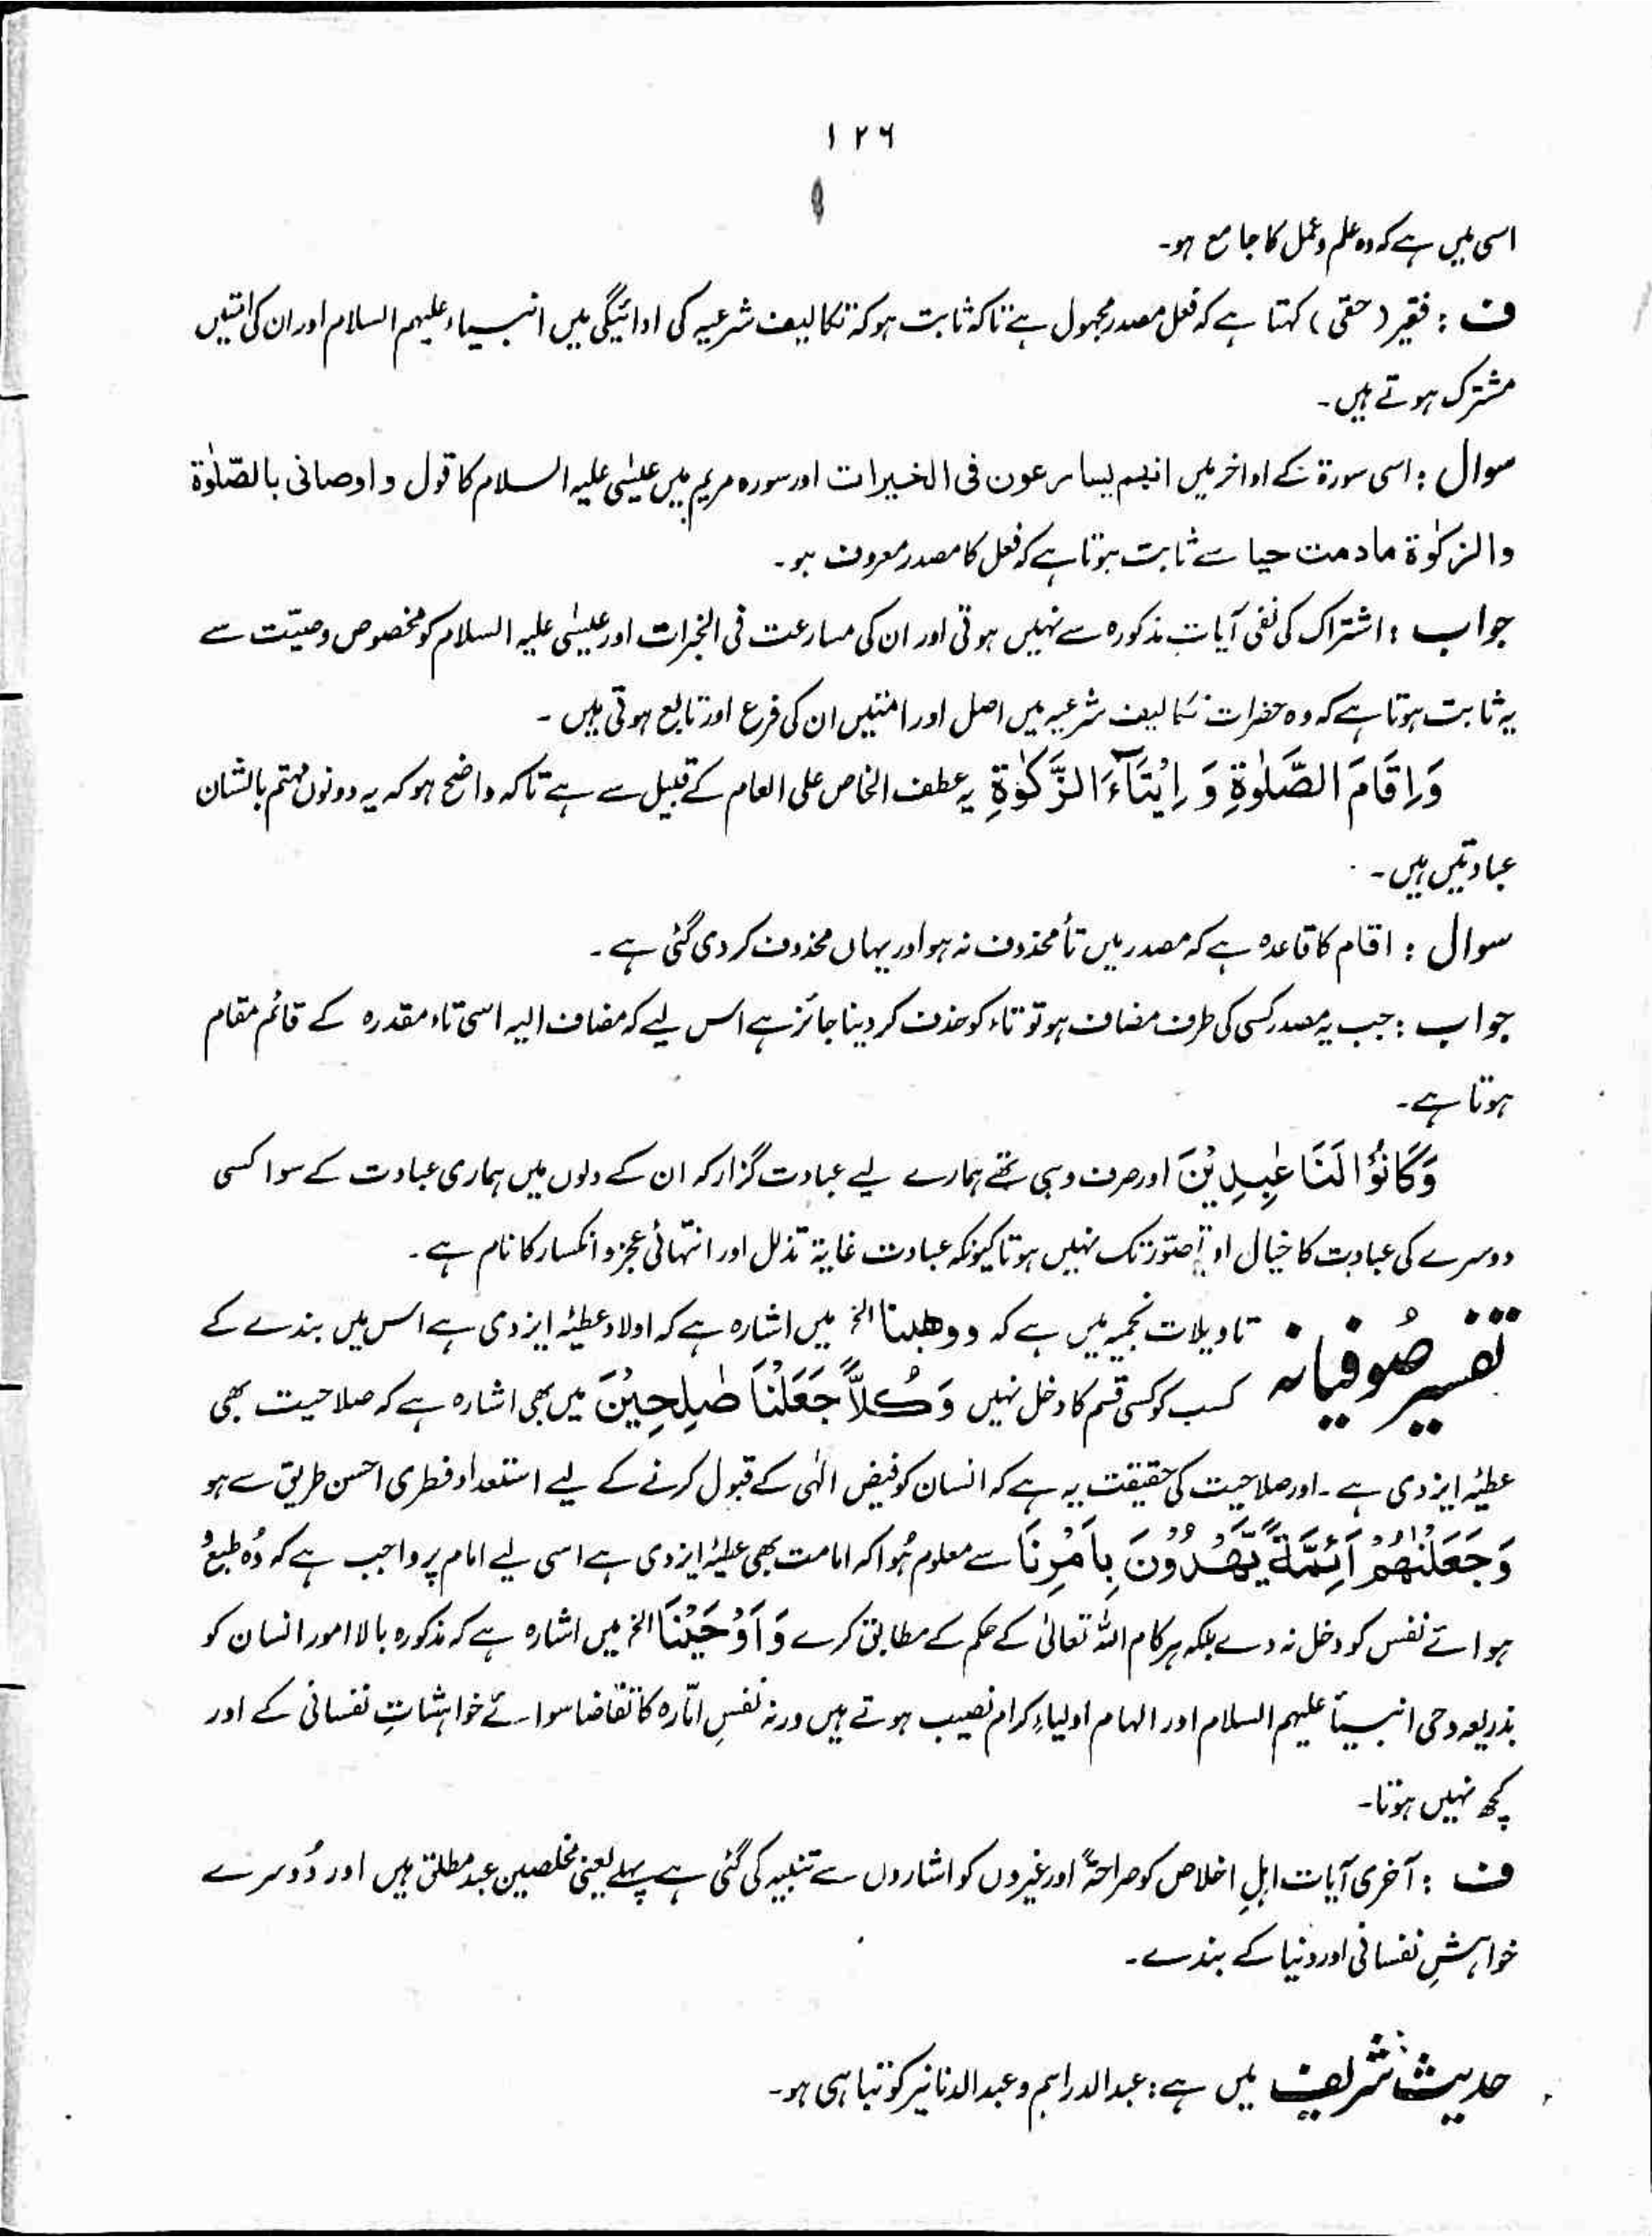 ۱۲۶
اسی میں ہے کہ وہ علم و عمل کا جامع ہو۔
ف : فقیر (حقی) کہتا ہے کہ فعل مصدر مجہول ہے تاکہ ثابت ہو کہ تکالیف شرعیہ کی ادائیگی میں انبیاء علیہم السلام اور ان کی امتیں
مشترک ہوتے ہیں۔
سوال : اسی سورۃ کے اواخر میں انہم یسارعون فی الخیرات اور سورہ مریم میں عیسٰی علیہ السلام کا قول و اوصانی بالصّلوٰۃ
والزکوٰۃ مادمت حیا سے ثابت ہوتا ہے کہ فعل کا مصدر معروف ہو۔
جواب : اشتراک کی نفی آیاتِ مذکورہ سے نہیں ہوتی اور ان کی مسارعت فی الخیرات اور عیسٰی علیہ السلام کو مخصوص وصیّت سے
یہ ثابت ہوتا ہے کہ وہ حضرات تکالیف شرعیہ میں اصل اور امتیں ان کی فرع اور تابع ہوتی ہیں۔
وَاِقَامَ الصَّلٰوةِ وَ اِيْتَآءَ الزَّكٰوةِ یہ عطف الخاص علی العام کے قبیل سے ہے تاکہ واضح ہو کہ یہ دونوں مہتم بالشان
عبادتیں ہیں۔
سوال : اقام کا قاعدہ ہے کہ مصدر میں تأ محذوف نہ ہو اور یہاں محذوف کر دی گئی ہے۔
جواب : جب یہ مصدر کسی کی طرف مضاف ہو تو تاء کو حذف کر دینا جائز ہے اس لیے کہ مضاف الیہ اسی تاء مقدرہ کے قائم مقام
ہوتا ہے۔
وَكَانُوْا لَنَا عٰبِدِيْنَ اور صرف وہی تھے ہمارے لیے عبادت گزار کہ ان کے دلوں میں ہماری عبادت کے سوا کسی
دوسرے کی عبادت کا خیال اور تصوّر تک نہیں ہوتا کیونکہ عبادت غایۃ تذلل اور انتہائی عجز و انکسار کا نام ہے۔
تفسیر صُوفیانہ تاویلات نجمیہ میں ہے کہ ووھبنا الخ میں اشارہ ہے کہ اولاد عطیۂ ایزدی ہے اس میں بندے کے
کسب کو کسی قسم کا دخل نہیں وَكُلًّا جَعَلْنَا صٰلِحِيْنَ میں بھی اشارہ ہے کہ صلاحیت بھی
عطیۂ ایزدی ہے۔ اور صلاحیت کی حقیقت یہ ہے کہ انسان کو فیض الٰہی کے قبول کرنے کے لیے استعداد فطری احسن طریق سے ہو
وَجَعَلْنٰهُمْ اَئِمَّةً يَّهْدُوْنَ بِاَمْرِنَا سے معلوم ہُوا کہ امامت بھی عطیۂ ایزدی ہے اسی لیے امام پر واجب ہے کہ وُہ طبع و
ہوائے نفس کو دخل نہ دے بلکہ ہر کام اللہ تعالیٰ کے حکم کے مطابق کرے وَاَوْحَيْنَا الخ میں اشارہ ہے کہ مذکورہ بالا امور انسان کو
بذریعہ وحی انبیأ علیہم السلام اور الہام اولیاءِ کرام نصیب ہوتے ہیں ورنہ نفسِ امّارہ کا تقاضا سوائے خواہشاتِ نفسانی کے اور
کچھ نہیں ہوتا۔
ف : آخری آیات اہلِ اخلاص کو صراحۃً اور غیروں کو اشاروں سے تنبیہ کی گئی ہے پہلے یعنی مخلصین عبد مطلق ہیں اور دُوسرے
خواہشِ نفسانی اور دنیا کے بندے۔
حدیث شریف میں ہے : عبدالدراہم و عبدالدنانیر کو تباہی ہو۔